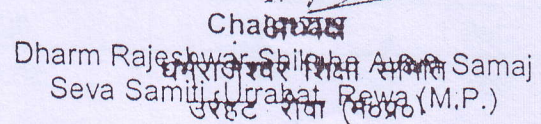 Chairman
अध्यक्ष
Dharm Rajeshwar Shiksha Avam Samaj
धर्मराजेश्वर शिक्षा समिति
Seva Samiti, Urrahat, Rewa (M.P.)
उरहट रीवा (म०प्र०)